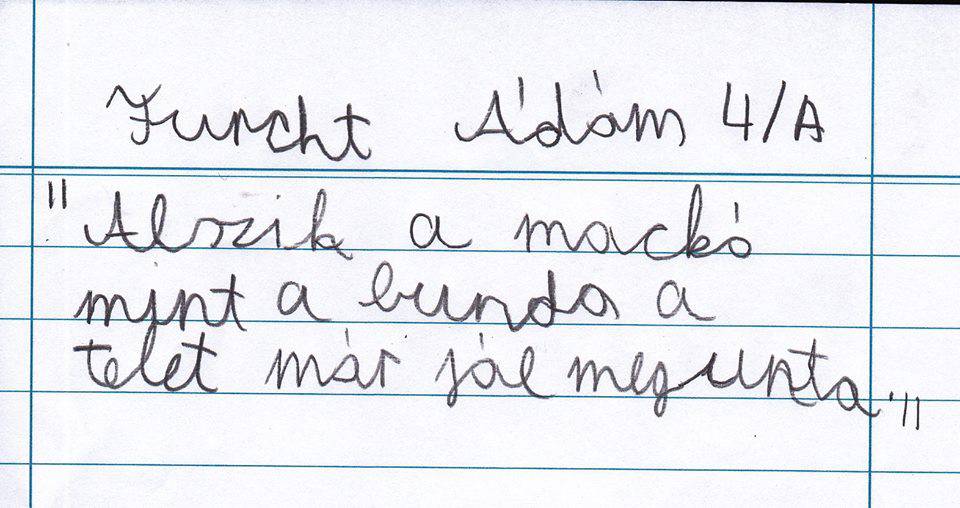 Furcht Ádám 4/A
"Alszik a mackó
mint a bunda a
telet már jál megunta."